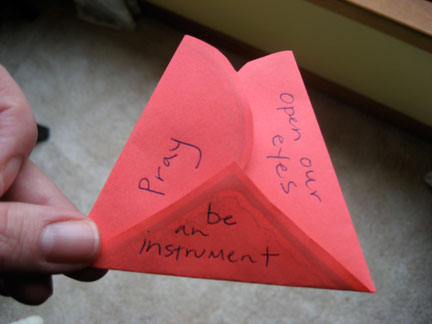 Pray
open our
eyes
be
an
instrument